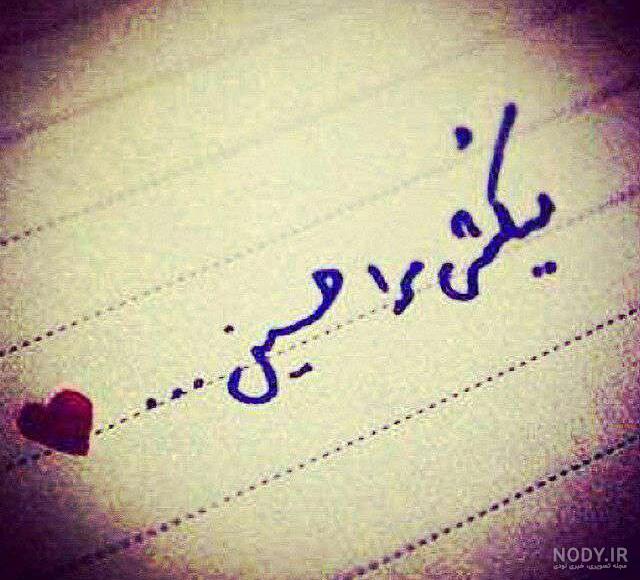 میکشی مرا حسین ...
NODY.IR
مجله تصویری، خبری نودی